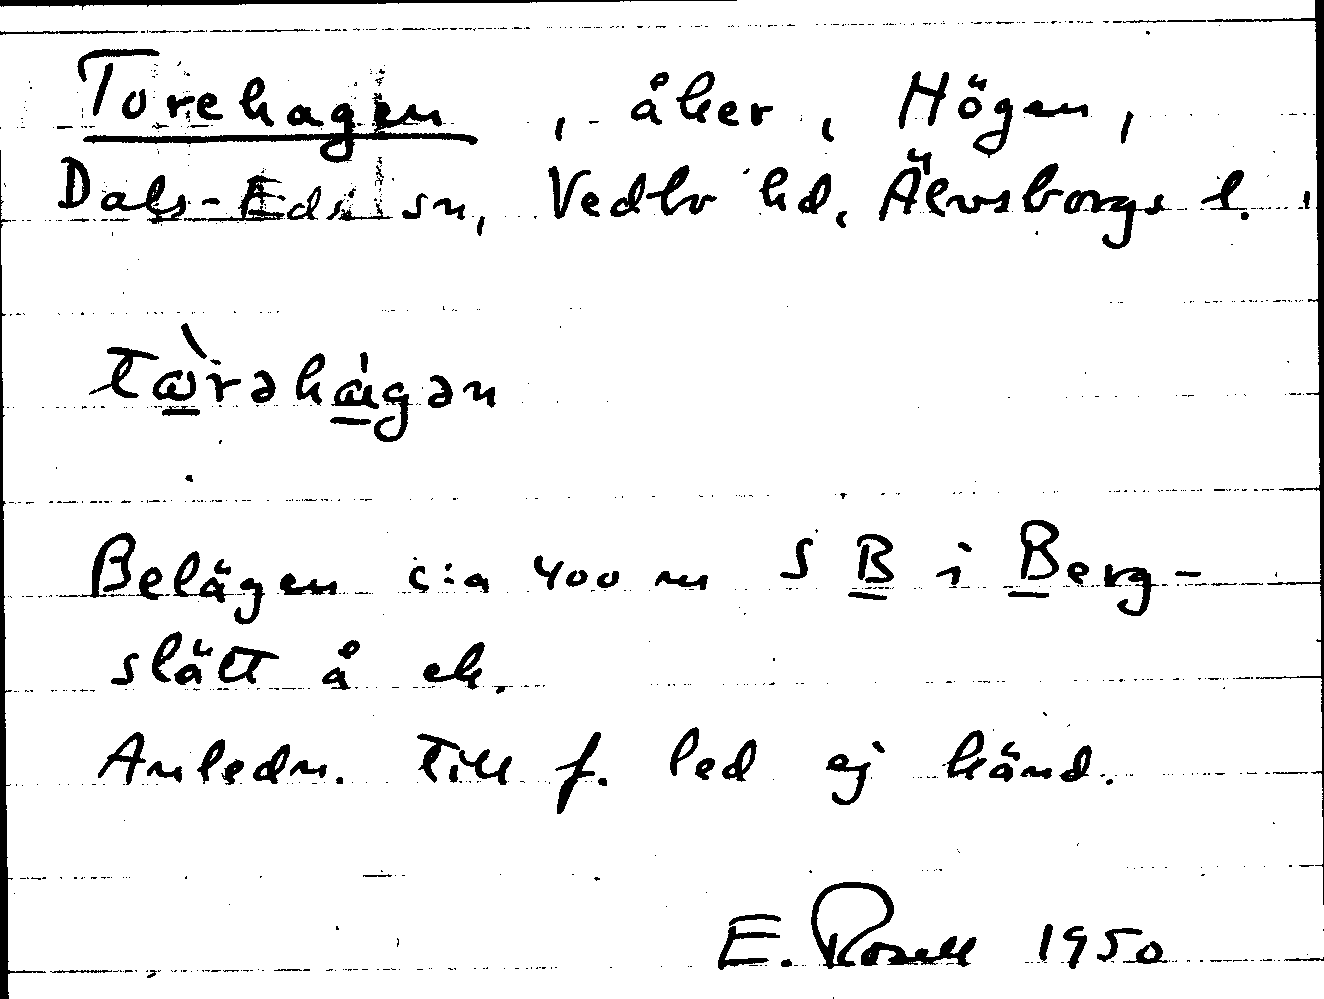 Torehagen, åker, Högen,
Dals-Eds sn, Vedbo hd, Älvsborgs l.
Belägen c:a 400 m S B i Berg-
slätt å ek.
Anledn. till f. led ej känd.
E. Rosell 1950